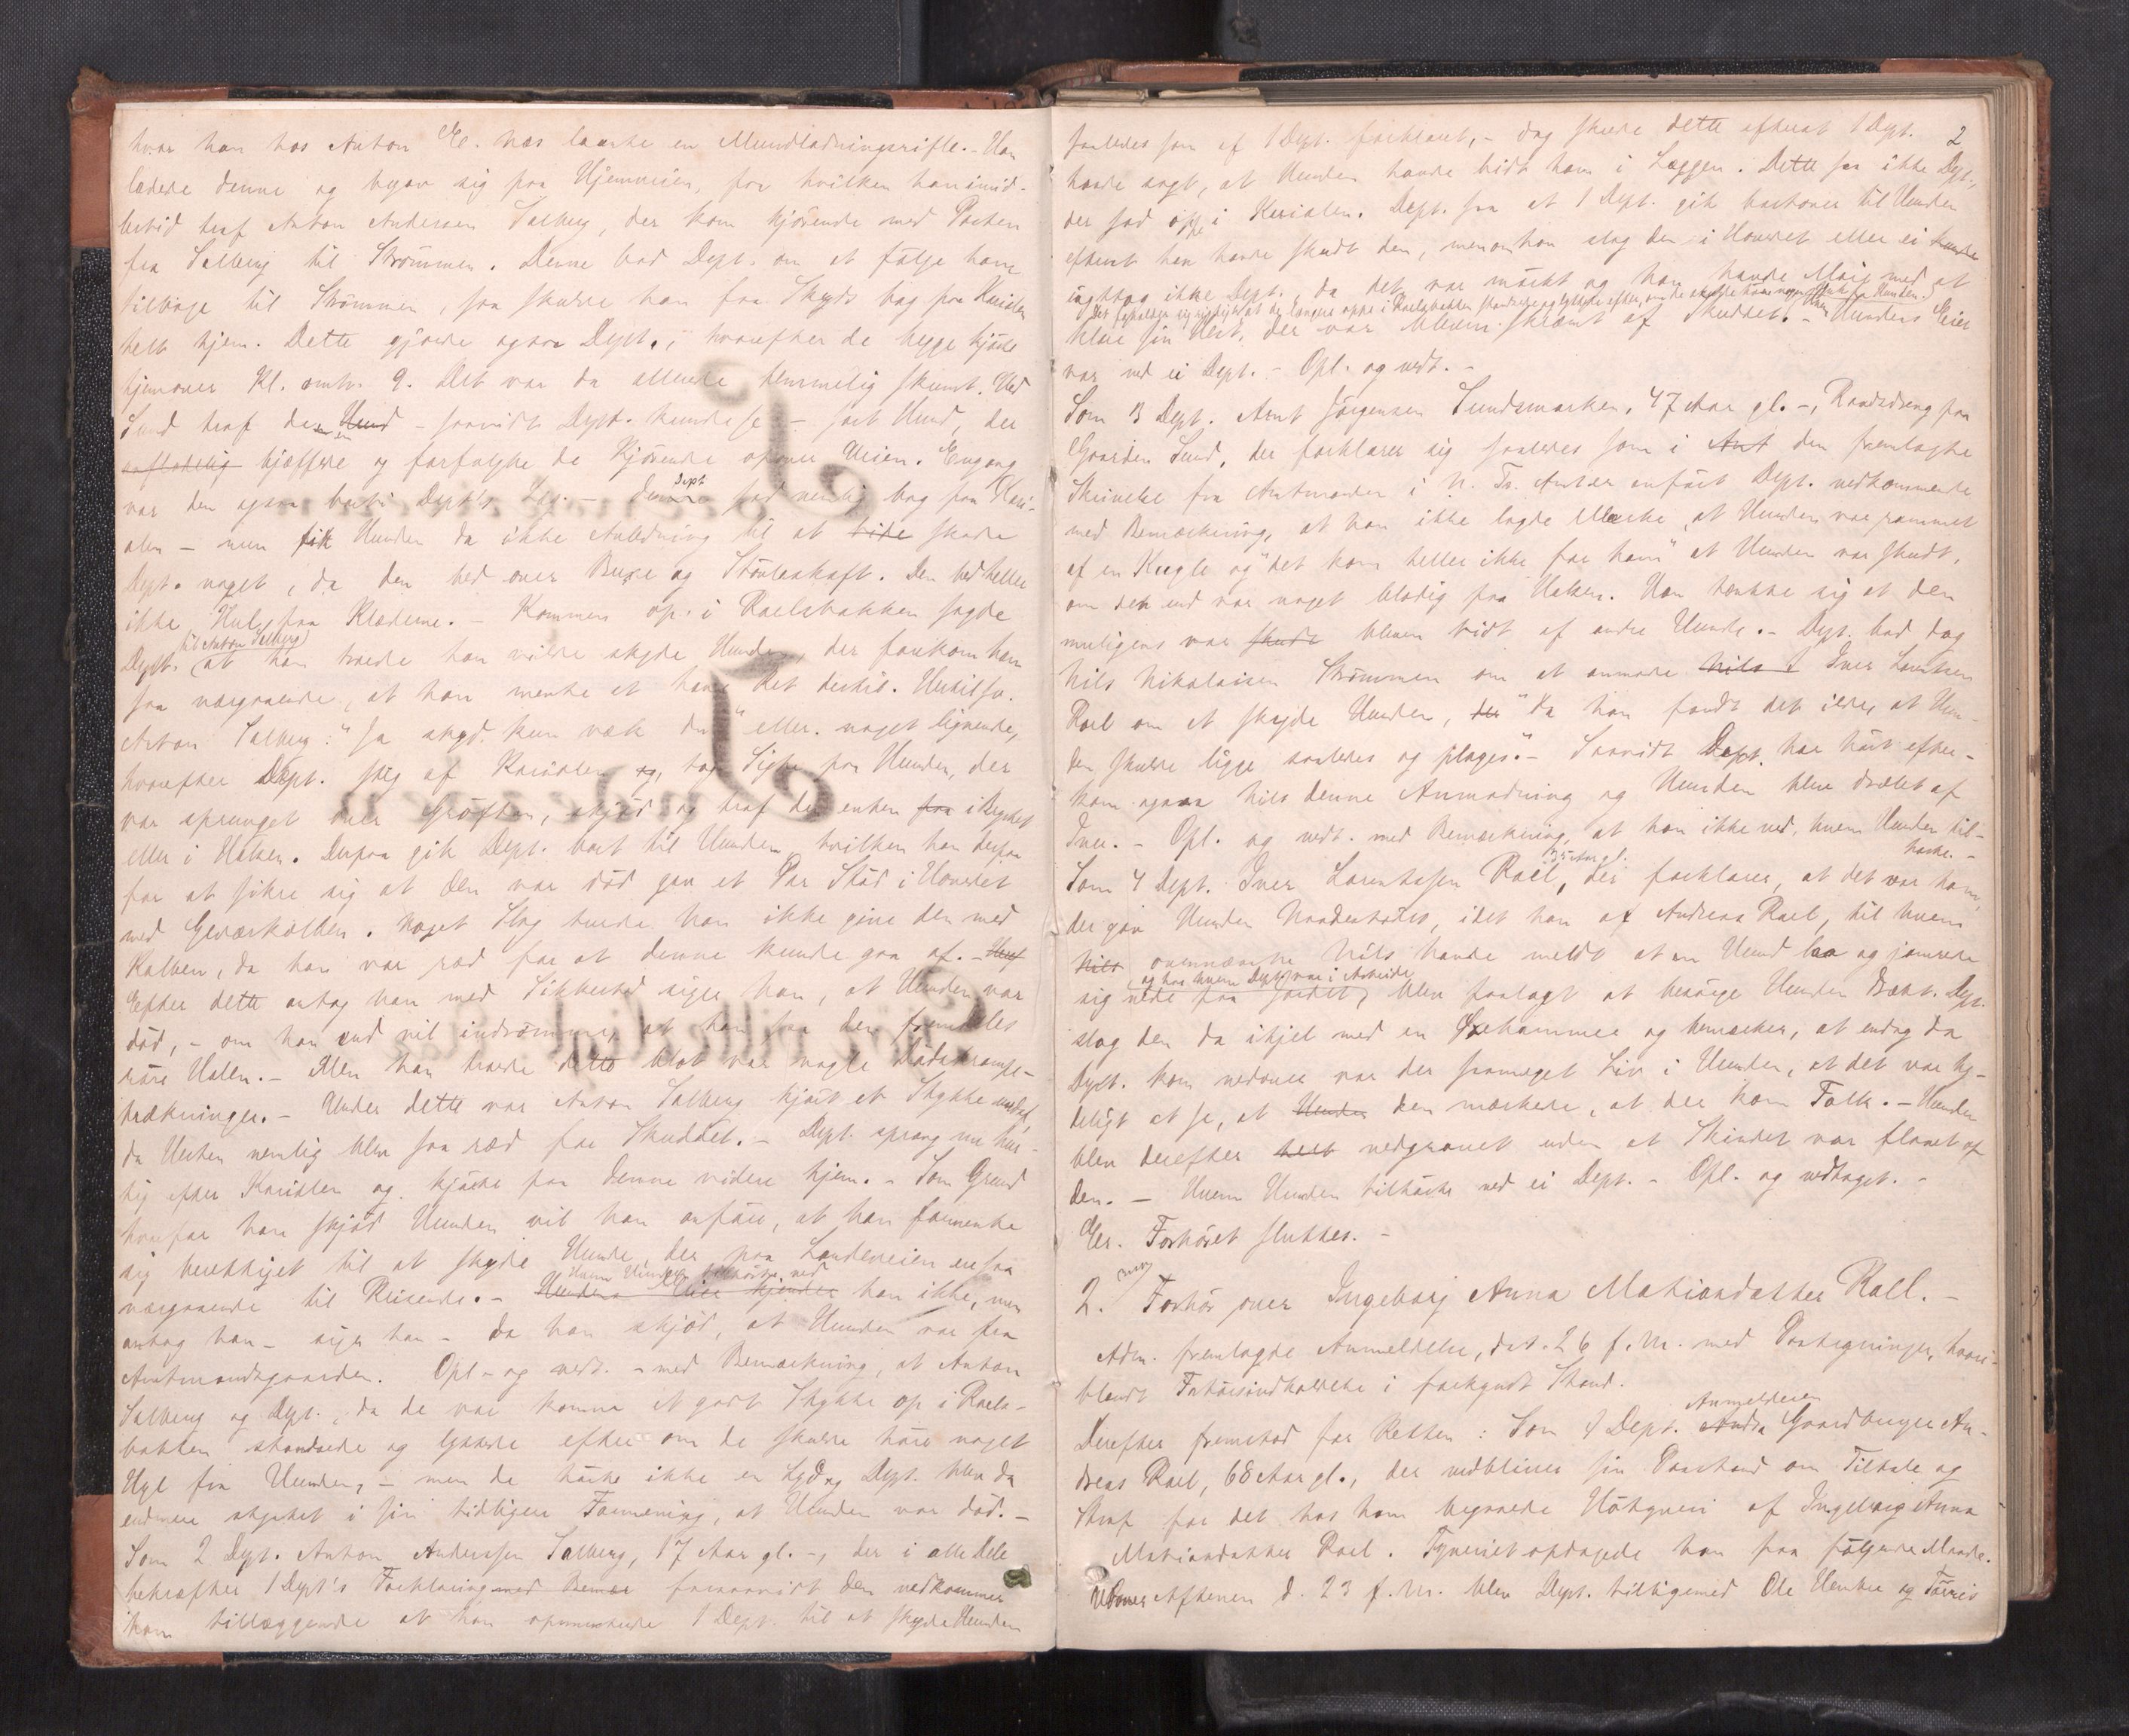 hvor han hos Anton E. Næs laante en Mundladningsrifle. - Han
ladede denne og begav sig paa Hjemveien, paa hvilken han imid-
lertid traf Anton Andersen Salberg, der kom kjørende med Posten
fra Salberg til Strømmen. Denne bad Dept. om at følge ham
tilbage til Strømmen, saa skulde han faa Skyds bag paa Kariolen
helt hjem. Dette gjorde ogsaa Dept., hvorefter de begge kjørte
hjemover Kl. omtr. 9. Det var da allerede temmelig skumt. Ved
Sund traf de en Hund - saavidt Dept. kunde se - sort Hund, der
bjæffede og forfulgte de Kjørende opover Veien. Engang
var den ogsaa borti Dept's - Dept sad nemlig bag paa Kari-
olen - men fik Hunden da ikke Anledning til at bide skade
Dept. noget, da den bed over Buxe og Støvleskaft. Den bed heller
ikke Hul paa Klæderne. - Kommen op i Raelsbakken sagde
Dept. (til Anton Salberg) at han troede han vilde skyde Hunden, der forekom ham
saa nærgaaende, at han mente at have Ret dertil. Hertil sv.
Anton Salberg: "Ja skyd kun væk du" eller noget lignende,
hvorefter Dept. steg af Kariolen og, tog Sigte paa Hunden, der
var sprunget over Grøften, skjød og traf den enten i Rygget
eller i Halsen. Derpaa gik Dept. bort til Hunden, hvilken han derpaa
for at sikre sig at den var død gav et Par Stød i Hovedet
med Geværkolben. Noget Slag turde han ikke give den med
Kolben, da han var ræd for at denne kunde gaa af. -
Efter dette antog han med Sikkerhed siger han, at Hunden var
død, - om han end vil indrømme, at han saa den fremdeles
røre Halen. - Men han troede dette blot var nogle Dødskrampe-
trækninger. - Under dette var Anton Salberg kjørt et Stykke
da Hesten nemlig blev saa ræd for Skuddet. - Dept. sprang nu hur-
tig efter Kariolen og kjørte paa denne videre hjem. - Som Grund
hvorfor han skjød Hunden vil han anføre, at han formente
sig berettiget til at skyde Hunde, der paa Landeveien er saa
nærgaaende til Reisende. - Hvem Hunden tilhørte ved han ikke, men
antog han - siger han - da han skjød, at Hunden var fra
Amtmandsgaarden. Opl. og vedt. - med Bemærkning, at Anton
Salberg og Dept., da de var komne et godt Stykke op i Raels-
bakken standsede og lyttede efter om de skulde høre noget
Hyl fra Hunden, - men de hørte ikke en Lyd og Dept. blev da
endmere styrket i sin tidligere Formening, at Hunden var død. -
Som 2 Dept. Anton Anderssen Salberg, 17 Aar gl. -, der i alle Dele
bekræfter 1 Dept's Forklaring med Bemær forsaavidt den vedkommer
ham tillæggende at han opmuntrede 1 Dept. til at skyde Hunden
2
saaledes som af 1 Dept. forklaret, - dog skede dette efterat 1 Dept.
havde sagt, at Hunden havde bidt ham i Læggen. Dette saa ikke Dept.,
der sad oppe i Kariolen. Dept. saa at 1 Dept. gik bortover til Hunden
efterat han havde skudt den, men om han slog den i Hovedet eller ei
iagttog ikke Dept., da det var mørkt og han havde Møie med at
Det forholder sig rigtigt at de længere oppe i Raelsbakken standsede og lyttede efter, om de skulde høre noget fra Hunden.
klare sin Hest, der var bleven skræmt af Skuddet. - Hvem Hundens Eier
var ved ei Dept. - Opl. og vedt. -
Som 3 Dept. Arnt Jørgensen Sundsmarken, 47 Aar gl. -, Raadsdreng paa
Gaarden Sund, der forklarer sig saaledes som i Ant den fremlagte
Skrivelse fra Amtmanden i N. Tr. Amt er anført Dept. vedkommende
med Bemærkning, at han ikke lagde Mærke, at Hunden var rammet
af en Kugle og "det kom heller ikke for ham" at Hunden var skudt,
om den end var noget blodig paa Halsen. Han tænkte sig at den
muligens var skudt bleven bidt af andre Hunde. - Dept. bad dog
Nils Nikolaisen Strømmen om at anmode Nils I Iver Lorentsen
Rael om at skyde Hunden, der "da han fandt det ilde, at Hun-
den skulde ligge saaledes og plages". - Saavidt Dept. har hørt efter-
kom ogsaa Nils denne Anmodning og Hunden blev dræbt af
Iver. - Opl. og vedt. med Bemærkning, at han ikke ved, hvem Hunden til-
hørte. -
Som 4 Dept. Iver Lorentssen Rael, 35 Aar gl. der forklarer, at det var ham,
der gav Hunden Naadestødet, idet han af Andreas Rael, til hvem
Nils ovennævnte Nils havde meldt at en Hund laa og jamrede
sig nede paa Jordet, og hos hvem Dept. var i Arbeide, blev paalagt at besørge Hunden dræbt. Dept.
slog den da ihjel med en Øxehammer og bemærker, at endog da
Dept. kom nedover var der saameget Liv i Hunden, at det var ty-
deligt at se, at Hunden den mærkede, at der kom Folk. - Hunden
blev derefter nedgravet uden at Skindet var flaaet af
den. - Hvem Hunden tilhørte ved ei Dept. - Opl. og vedtaget. -
Forhøret sluttes. -
2. Forhør over Ingeborg Anna Mathiasdatter Rael. -
Adm. fremlagde Anmeldelse, dat. 26 f. M. med Paategninger, hvori-
blandt Forhørsindkaldelse i forkyndt Stand.
Derefter fremstod for Retten: Som 1 Dept. Anmelderen Gaardbruger An-
dreas Rael, 68 Aar gl., der vedbliver sin Paastand om Tiltale og
Straf for det hos ham begaaede Høtyveri af Ingeborg Anna
Mathiasdatter Rael. Tyveriet opdagede han paa følgende Maade.
Udover Aftenen d. 23 f. M. blev Dept. tilligemed Ole og